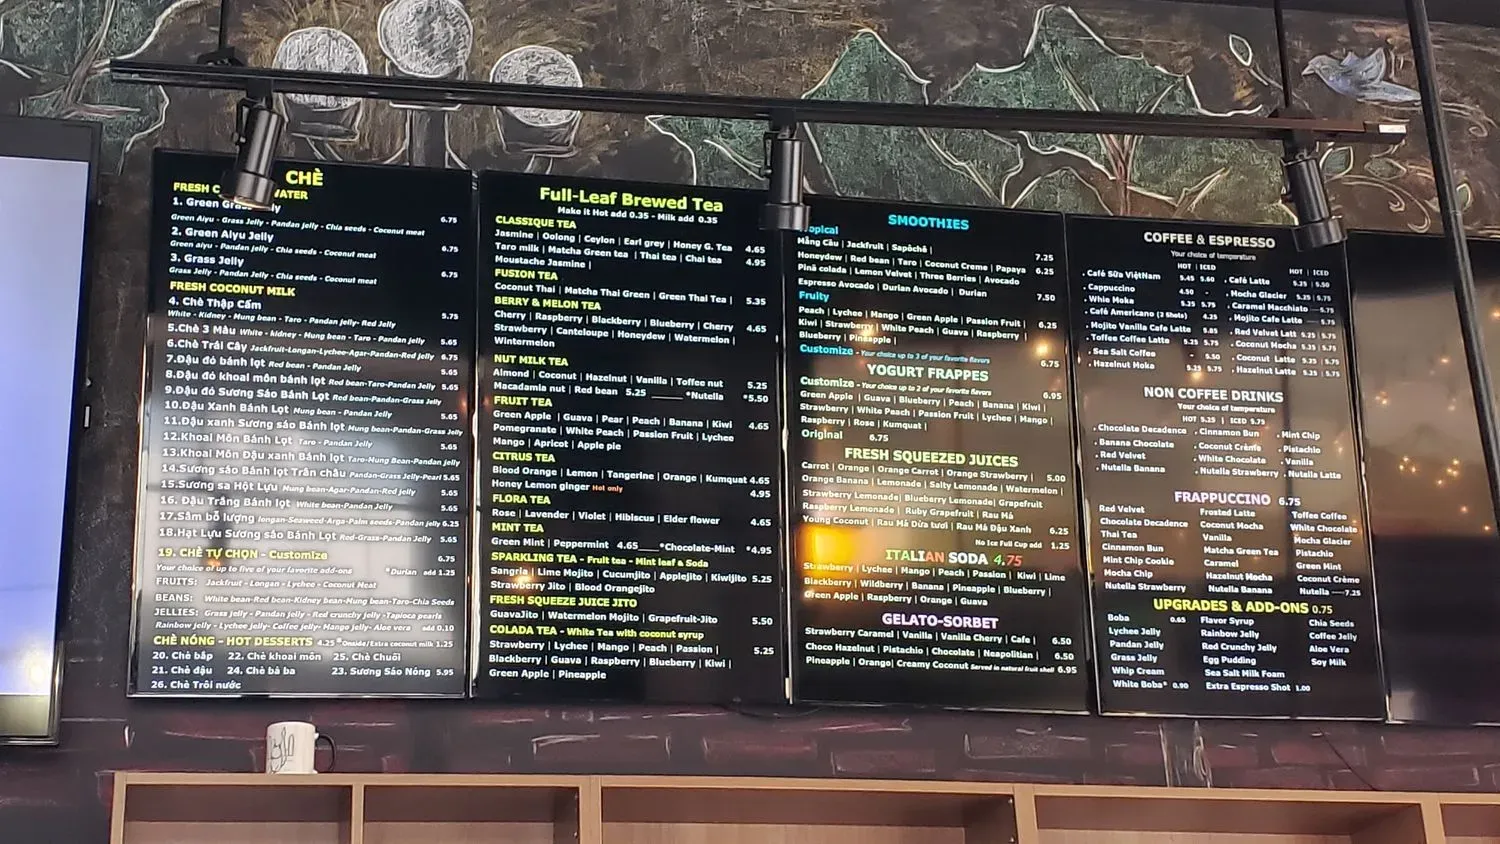 CHÈ
FRESH C WATER
1. Green Gra ly
Green Aiyu - Grass Jelly - Pandan jelly - Chia seeds - Coconut meat 6.75
2. Green Aiyu Jelly
Green aiyu - Pandan jelly - Chia seeds - Coconut meat 6.75
3. Grass Jelly
Grass Jelly - Pandan Jelly - Chia seeds - Coconut meat 6.75
FRESH COCONUT MILK
4. Chè Thập Cẩm
White - Kidney - Mung bean - Taro - Pandan jelly- Red Jelly 5.75
5.Chè 3 Màu White - kidney - Mung bean - Taro - Pandan jelly 5.65
6.Chè Trái Cây Jackfruit-Longan-Lychee-Agar-Pandan-Red jelly 6.75
7.Đậu đỏ bánh lọt Red bean - Pandan jelly 5.65
8.Đậu đỏ khoai môn bánh lọt Red bean-Taro-Pandan Jelly 5.65
9.Đậu đỏ Sương Sáo Bánh Lọt Red bean-Pandan-Grass Jelly
10.Đậu Xanh Bánh Lọt Mung bean - Pandan Jelly 5.65
11.Đậu xanh Sương sáo Bánh lọt Mung bean-Pandan-Grass Jelly
12.Khoai Môn Bánh Lọt Taro - Pandan Jelly 5.65
13.Khoai Môn Đậu xanh Bánh lọt Taro-Mung Bean-Pandan jelly
14.Sương sáo Bánh lọt Trân châu Pandan-Grass Jelly-Pearl 5.65
15.Sương sa Hột Lựu Mung bean-Agar-Pandan-Red jelly 5.65
16. Đậu Trắng Bánh lọt White bean-Pandan Jelly 5.65
17.Sâm bổ lượng longan-Seaweed-Arga-Palm seeds-Pandan jelly 6.25
18.Hạt Lựu Sương sáo Bánh Lọt Red-Grass-Pandan Jelly 5.65
19. CHÈ TỰ CHỌN - Customize 6.75
Your choice of up to five of your favorite add-ons *Durian add 1.25
FRUITS: Jackfruit - Longan - Lychee - Coconut Meat
BEANS: White bean-Red bean-Kidney bean-Mung bean-Taro-Chia Seeds
JELLIES: Grass jelly - Pandan jelly - Red crunchy jelly -Tapioca pearls
Rainbow jelly - Lychee jelly- Coffee jelly- Mango jelly- Aloe vera add 0.10
CHÈ NÓNG - HOT DESSERTS 4.25 *Onside/Extra coconut milk 1.25
20. Chè bắp 22. Chè khoai môn 25. Chè Chuối
21. Chè đậu 24. Chè bà ba 23. Sương Sáo Nóng 5.95
26. Chè Trôi nước
Full-Leaf Brewed Tea
Make it Hot add 0.35 - Milk add 0.35
CLASSIQUE TEA
Jasmine | Oolong | Ceylon | Earl grey | Honey G. Tea 4.65
Taro milk | Matcha Green tea | Thai tea | Chai tea 4.95
Moustache Jasmine |
FUSION TEA
Coconut Thai | Matcha Thai Green | Green Thai Tea | 5.35
BERRY & MELON TEA
Cherry | Raspberry | Blackberry | Blueberry | Cherry 4.65
Strawberry | Canteloupe | Honeydew | Watermelon |
Wintermelon
NUT MILK TEA
Almond | Coconut | Hazelnut | Vanilla | Toffee nut 5.25
Macadamia nut | Red bean 5.25 ______ *Nutella *5.50
FRUIT TEA
Green Apple | Guava | Pear | Peach | Banana | Kiwi 4.65
Pomegranate | White Peach | Passion Fruit | Lychee
Mango | Apricot | Apple pie
CITRUS TEA
Blood Orange | Lemon | Tangerine | Orange | Kumquat 4.65
Honey Lemon ginger Hot only 4.95
FLORA TEA
Rose | Lavender | Violet | Hibiscus | Elder flower 4.65
MINT TEA
Green Mint | Peppermint 4.65____*Chocolate-Mint *4.95
SPARKLING TEA - Fruit tea - Mint leaf & Soda
Sangria | Lime Mojito | Cucumjito | Applejito | Kiwijito 5.25
Strawberry Jito | Blood Orangejito
FRESH SQUEEZE JUICE JITO
GuavaJito | Watermelon Mojito | Grapefruit-Jito 5.50
COLADA TEA - White Tea with coconut syrup
Strawberry | Lychee | Mango | Peach | Passion | 5.25
Blackberry | Guava | Raspberry | Blueberry | Kiwi |
Green Apple | Pineapple
SMOOTHIES
ropical
Mãng Cầu | Jackfruit | Sapôchê | 7.25
Honeydew | Red bean | Taro | Coconut Creme | Papaya 6.25
Pinã colada | Lemon Velvet | Three Berries | Avocado
Espresso Avocado | Durian Avocado | Durian 7.50
Fruity
Peach | Lychee | Mango | Green Apple | Passion Fruit | 6.25
Kiwi | Strawberry | White Peach | Guava | Raspberry |
Blueberry | Pineapple |
Customize - Your choice up to 3 of your favorite flavors 6.75
YOGURT FRAPPES
Customize - Your choice up to 2 of your favorite flavors 6.95
Green Apple | Guava | Blueberry | Peach | Banana | Kiwi |
Strawberry | White Peach | Passion Fruit | Lychee | Mango |
Raspberry | Rose | Kumquat |
Original 6.75
FRESH SQUEEZED JUICES
Carrot | Orange | Orange Carrot | Orange Strawberry | 5.00
Orange Banana | Lemonade | Salty Lemonade | Watermelon |
Strawberry Lemonade| Blueberry Lemonade| Grapefruit
Raspberry Lemonade | Ruby Grapefruit | Rau Má
Young Coconut | Rau Má Dừa tươi | Rau Má Đậu Xanh 6.25
No Ice Full Cup add 1.25
ITALIAN SODA 4.75
Strawberry | Lychee | Mango | Peach | Passion | Kiwi | Lime
Blackberry | Wildberry | Banana | Pineapple | Blueberry |
Green Apple | Raspberry | Orange | Guava
GELATO-SORBET
Strawberry Caramel | Vanilla | Vanilla Cherry | Cafe | 6.50
Choco Hazelnut | Pistachio | Chocolate | Neapolitian | 6.50
Pineapple | Orange| Creamy Coconut Served in natural fruit shell 6.95
COFFEE & ESPRESSO
Your choice of temperature
HOT | ICED HOT | ICED
. Café Sữa ViệtNam 5.45 5.60 . Café Latte 5.25 | 5.50
. Cappuccino 4.90 - . Mocha Glacier 5.25 | 5.75
. Whie Moka 5.25 5.75 . Caramel Macchiato 5.75
. Café Americano (2 Shots) 4.25 . Mojito Cafe Latte 5.75
. Mojito Vanilla Cafe Latte 5.85 . Red Velvet Latt 5.25 5.75
. Toffee Coffee Latte 5.25 5.75 . Coconut Mocha 5.25 | 5.75
. Sea Salt Coffee - 5.50 . Coconut Latte 5.25 | 5.75
. Hazelnut Moka 5.25 5.75 . Hazelnut Latte 5.25 | 5.75
NON COFFEE DRINKS
Your choice of temperature
HOT 5.25 | ICED 5.75
. Chocolate Decadence . Cinnamon Bun . Mint Chip
. Banana Chocolate . Coconut Crème . Pistachio
. Red Velvet . White Chocolate . Vanilla
. Nutella Banana . Nutella Strawberry . Nutella Latte
FRAPPUCCINO 6.75
Red Velvet Frosted Latte Toffee Coffee
Chocolate Decadence Coconut Mocha White Chocolate
Thai Tea Vanilla Mocha Glacier
Cinnamon Bun Matcha Green Tea Pistachio
Mint Chip Cookie Caramel Green Mint
Mocha Chip Hazelnut Mocha Coconut Crème
Nutella Strawberry Nutella Banana Nutella ----7.25
UPGRADES & ADD-ONS 0.75
Boba 0.65 Flavor Syrup Chia Seeds
Lychee Jelly Rainbow Jelly Coffee Jelly
Pandan Jelly Red Crunchy Jelly Aloe Vera
Grass Jelly Egg Pudding Soy Milk
Whip Cream Sea Salt Milk Foam
White Boba* 0.90 Extra Espresso Shot 1.00